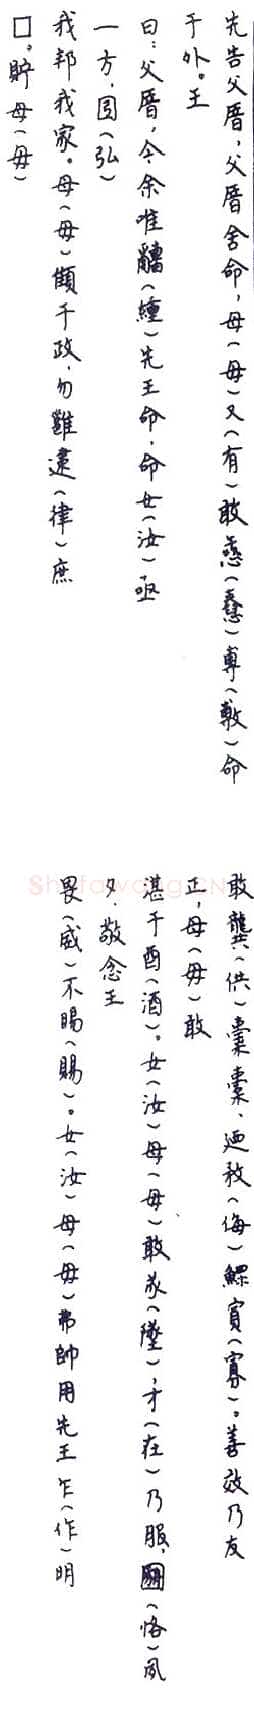 先告父厝，父厝舍命，母（毋）又（有）敢惷（蠢）尃（敷）命
于外。王
曰：父厝，今余唯（纏）先王命，命女（汝）亟
一方，（弘）
我邦我家。母（毋）顀于政，勿雝逮（律）庶
□。貯母（毋）
敢龏（供）橐橐，迺敄（侮）鰥寡（寡）。善效乃友
正，母（毋）敢
湛于酉（酒）。女（汝）母（毋）敢（墜），才（在）乃服，（恪）夙
夕，敬念王
畏（威）不睗（賜）。女（汝）母（毋）弗帥用先王乍（作）明
Shufawang.CN